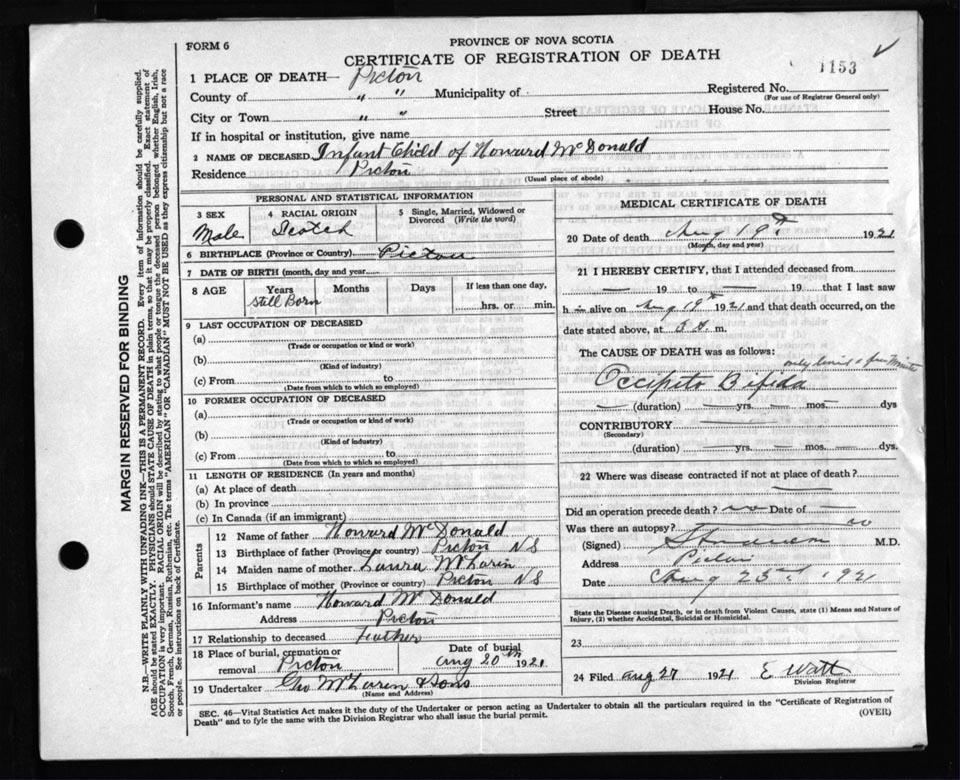 FORM 6
PROVINCE OF NOVA SCOTIA
CERTIFICATE OF REGISTRATION OF DEATH
1153
1 PLACE OF DEATH— Pictou
County of " " Municipality of Registered No.
(For use of Registrar General only)
City or Town " " Street House No.
If in hospital or institution, give name
2 NAME OF DECEASED Infant Child of Howard McDonald
Residence Pictou
(Usual place of abode)
PERSONAL AND STATISTICAL INFORMATION
3 SEX Male
4 RACIAL ORIGIN Scotch
5 Single, Married, Widowed or Divorced (Write the word)
6 BIRTHPLACE (Province or Country) Pictou
7 DATE OF BIRTH (month, day and year)
8 AGE Years Months Days If less than one day,
Still Born hrs. or min.
9 LAST OCCUPATION OF DECEASED
(a)
(Trade or occupation or kind or work)
(b)
(Kind of industry)
(c) From to
(Date from which to which so employed)
10 FORMER OCCUPATION OF DECEASED
(a)
(Trade or occupation or kind of work)
(b)
(Kind of industry)
(c) From to
(Date from which to which so employed)
11 LENGTH OF RESIDENCE (In years and months)
(a) At place of death
(b) In province
(c) In Canada (if an immigrant)
Parents
12 Name of father Howard McDonald
13 Birthplace of father (Province or country) Pictou NS
14 Maiden name of mother Laura McLarin
15 Birthplace of mother (Province or country) Pictou NS
16 Informant's name Howard McDonald
Address Pictou
17 Relationship to deceased Father
18 Place of burial, cremation or removal Pictou
Date of burial Aug 20th 1921
19 Undertaker Geo McLaren & Sons
(Name and Address)
MEDICAL CERTIFICATE OF DEATH
20 Date of death Aug 19th 1921
(Month, day and year)
21 I HEREBY CERTIFY, that I attended deceased from
— 19 to — 19 that I last saw
h — alive on Aug 19th 1921 and that death occurred, on
date stated above, at m.
The CAUSE OF DEATH was as follows:
only lived a few minutes
Occipito Bifida
— (duration) — yrs. — mos — dys
CONTRIBUTORY
(Secondary)
(duration) yrs. mos. dys.
22 Where was disease contracted if not at place of death?
Did an operation precede death? no Date of —
Was there an autopsy? no
(Signed) M.D.
Address Pictou
Date Aug 23rd 1921
State the Disease causing Death, or in death from Violent Causes, state (1) Means and Nature of Injury, (2) whether Accidental, Suicidal or Homicidal.
23
24 Filed Aug 27 1921 E Watt
Division Registrar
SEC. 46—Vital Statistics Act makes it the duty of the Undertaker or person acting as Undertaker to obtain all the particulars required in the "Certificate of Registration of
Death" and to fyle the same with the Division Registrar who shall issue the burial permit.
(OVER)
MARGIN RESERVED FOR BINDING
N.B.—WRITE PLAINLY WITH UNFADING INK—THIS IS A PERMANENT RECORD. Every item of information should be carefully supplied.
AGE should be stated EXACTLY. PHYSICIANS should STATE CAUSE OF DEATH in plain terms, so that it may be properly classified. Exact statement of
OCCUPATION is very important. RACIAL ORIGIN will be described by stating to what people or tongue the deceased person belonged whether English, Irish,
Scotch, French, German, Russian, Ruthenian, etc. The terms "AMERICAN" OR "CANADIAN" MUST NOT BE USED as they express citizenship but not a race
or people. See instructions on back of Certificate.